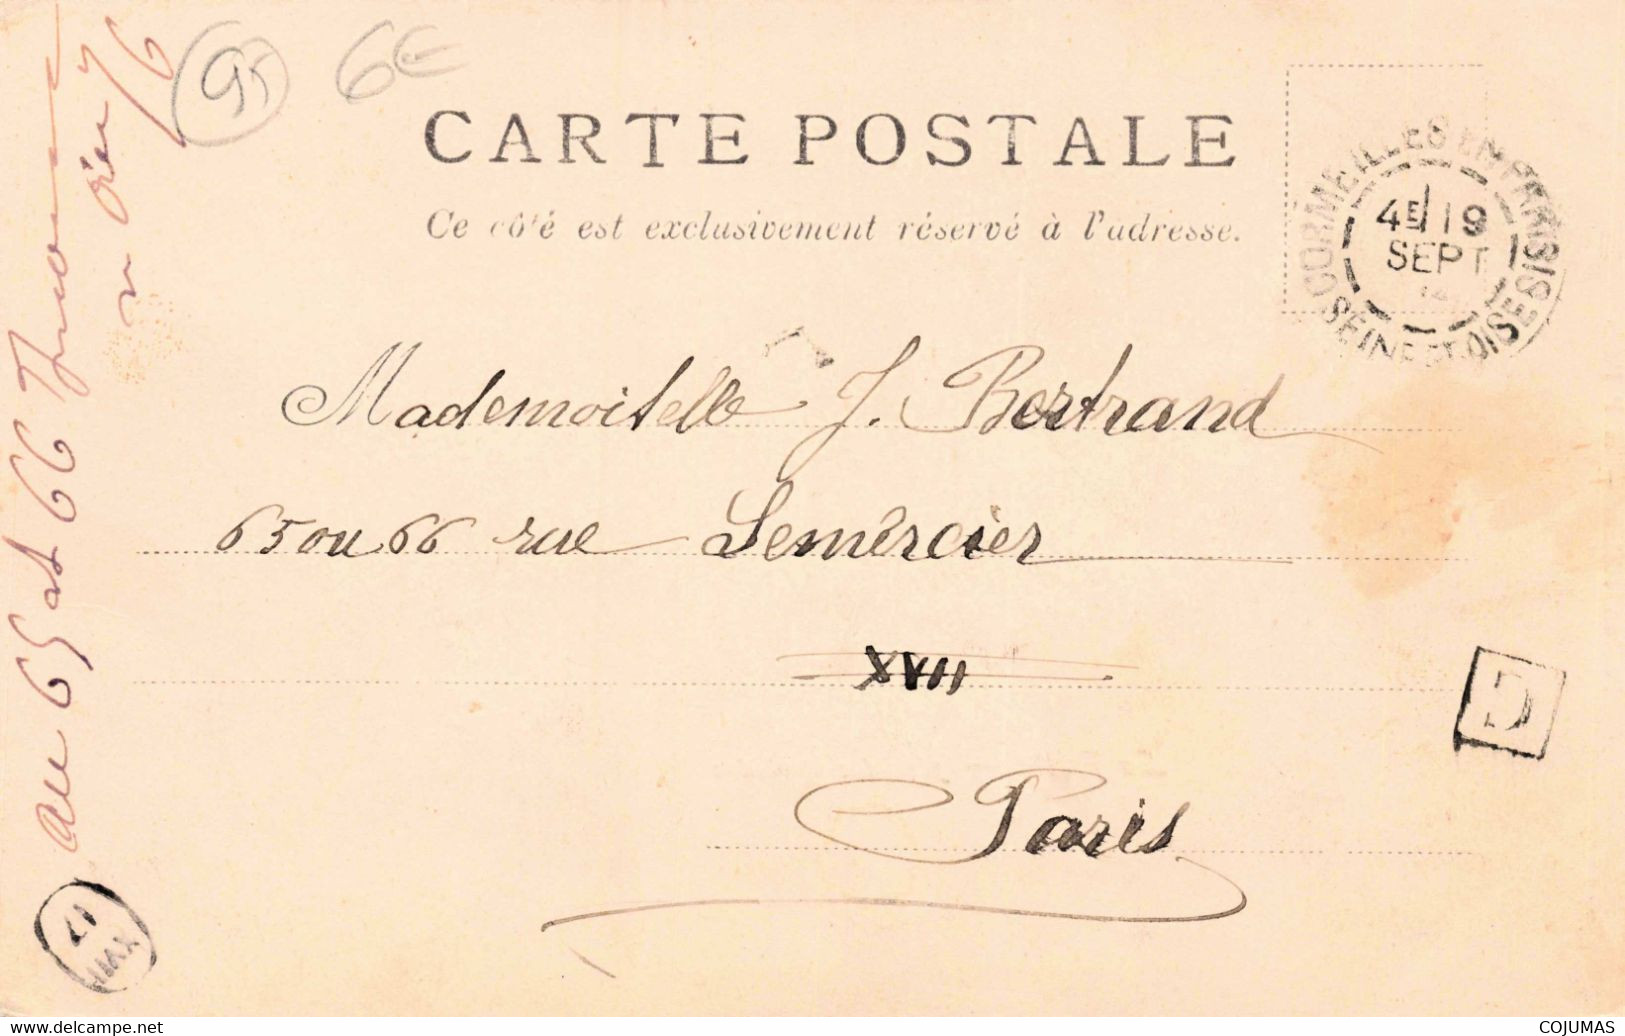 95 6€
CARTE POSTALE
Ce côté est exclusivement réservé à l'adresse.
CORMEILLES EN PARISIS
4E 19
SEPT
SEINE ET OISE
Mademoiselle J. Bertrand
65 ou 66 rue Lemèrcier
XVII
Paris
D
au 65 et 66
76
17
XVII
www.delcampe.net
COJUMAS